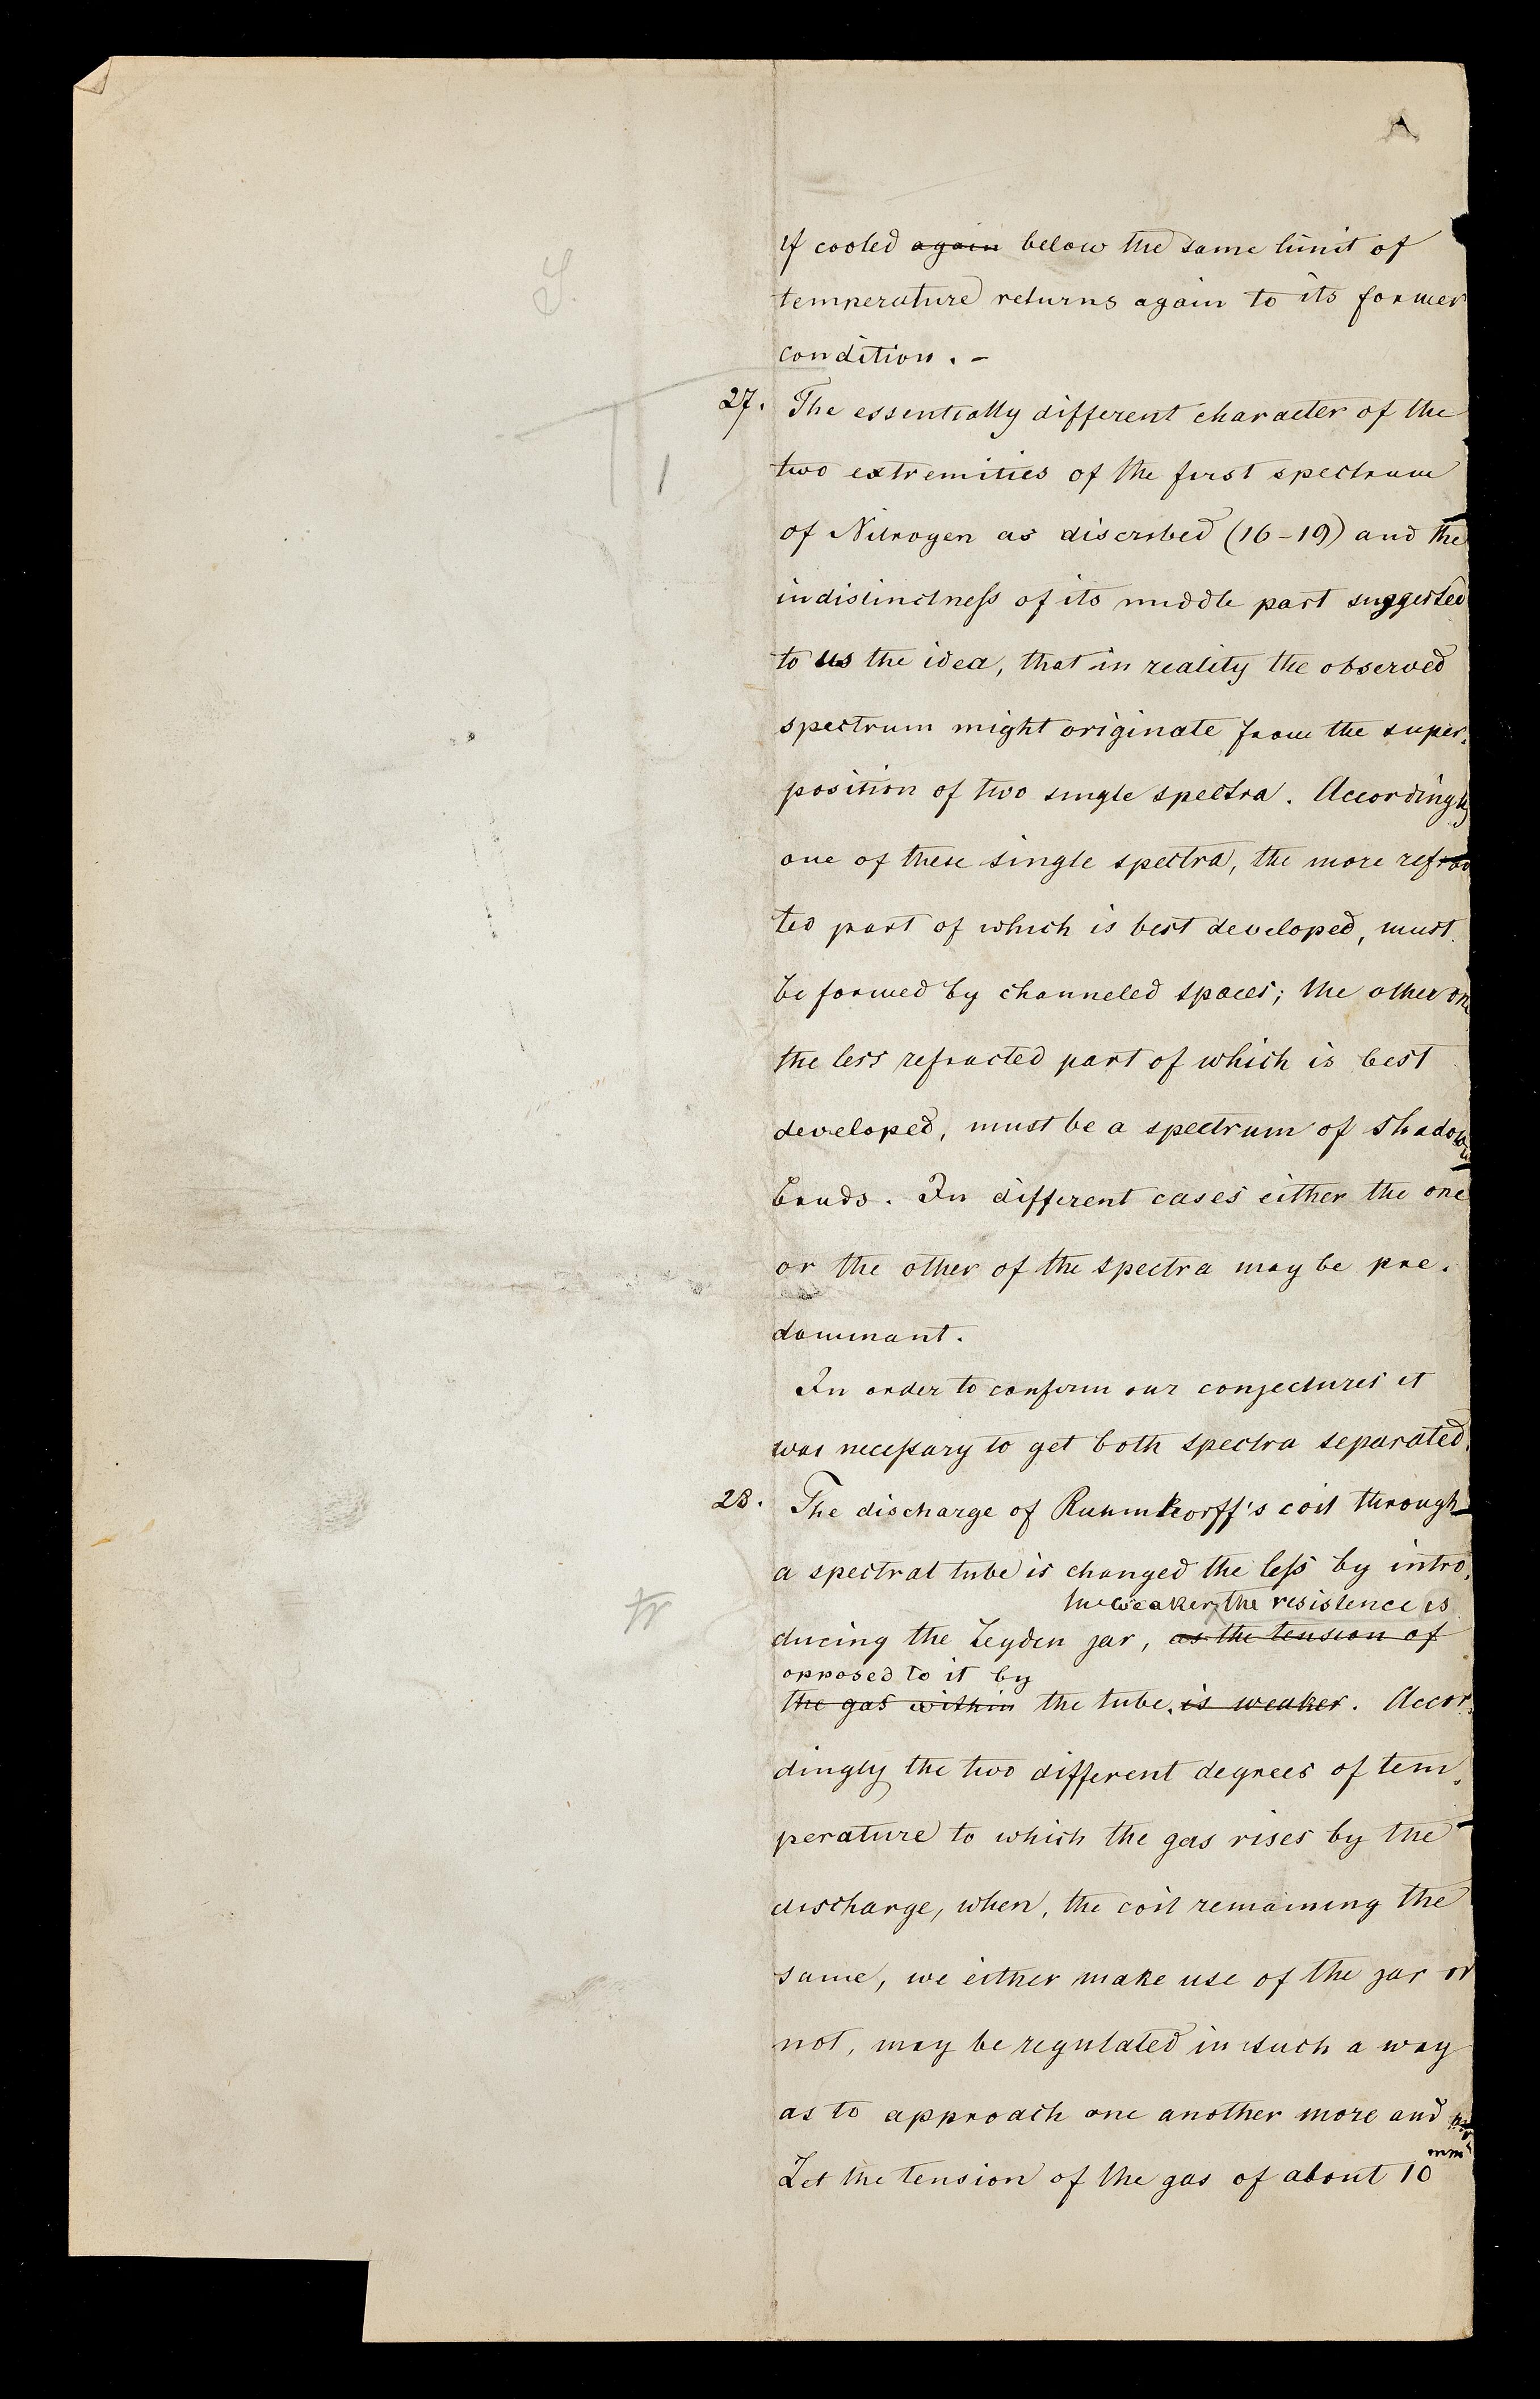 A
if cooled again below the same limit of
temperature returns again to its former
condition. -
27. The essentially different character of the
two extremities of the first spectrum
of Nitrogen as discribed (16-19) and the
indistinctness of its middle part suggested
to us the idea, that in reality the observed
spectrum might originate from the super-
position of two single spectra. Accordingly
one of these single spectra, the more refrac
ted part of which is best developed, must
be formed by channeled spaces; the other one
the less refracted part of which is best
developed, must be a spectrum of shadowed
bands. In different cases either the one
or the other of the spectra may be pre-
dominant.
In order to confirm our conjectures it
was necessary to get both spectra separated.
28. The discharge of Ruhmkorff's coil through
a spectral tube is changed the less by intro-
the weaker the resistence is
ducing the Leyden jar, as the tension of
opposed to it by
the gas within the tube. is weaker. Accor-
dingly the two different degrees of tem-
perature to which the gas rises by the
discharge, when, the coil remaining the
same, we either make use of the jar or
not, may be regulated in such a way
as to approach one another more and
Let the tension of the gas of about 10 mm
tr